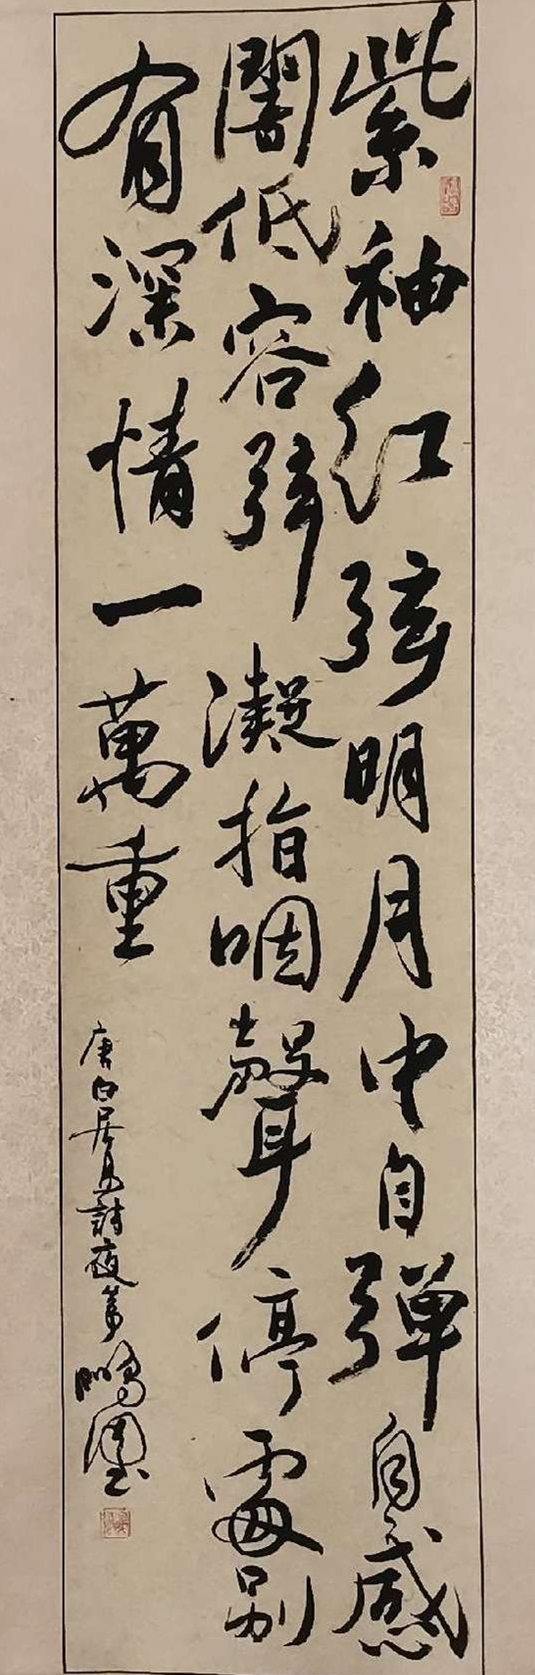 紫袖红弦明月中自弹自感
闇低容弦凝指咽聲停處别
有深情一萬重
唐白居易詩夜筝